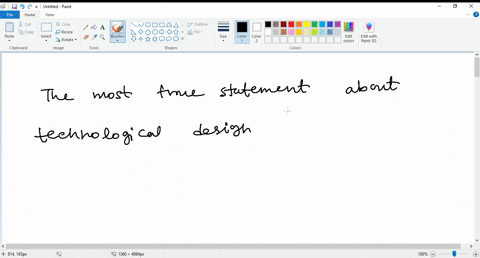 Untitled - Paint
File Home View
Paste Cut Copy Select Crop Resize Rotate Brushes Outline Fill Size Color 1 Color 2 Edit colors Edit with Paint 3D
Clipboard Image Tools Shapes Colors
The most true statement about
technological design
814, 165px 1360 × 4984px 100%